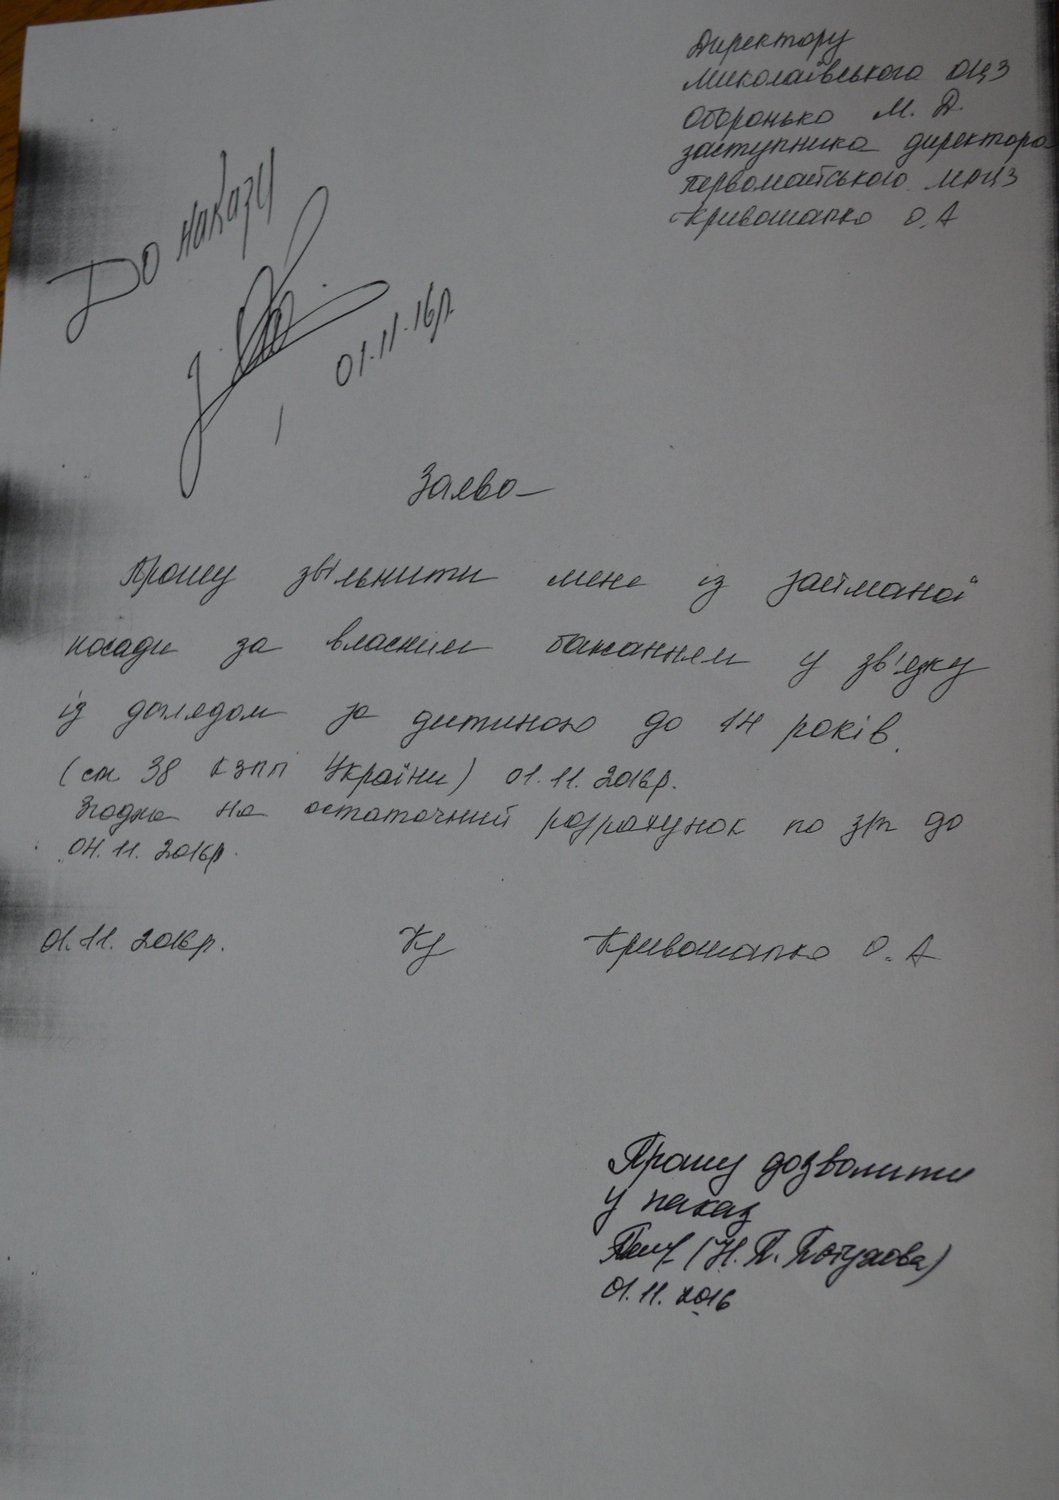 Директору
Миколаївського ОЦЗ
Оборонько М. Д.
заступника директора
Первомайського МРЦЗ
Кривошапко О. А
До наказу
01.11.16р.
Заява
Прошу звільнити мене із займаної
посади за власним бажанням у зв'язку
із доглядом за дитиною до 14 років.
(ст. 38 КЗпП України) 01.11.2016р.
Згодна на остаточний розрахунок по з/п до
04.11.2016р.
01.11.2016р. Кривошапко О. А
Прошу дозволити
у наказ
(Н. П. Потужова)
01.11.2016